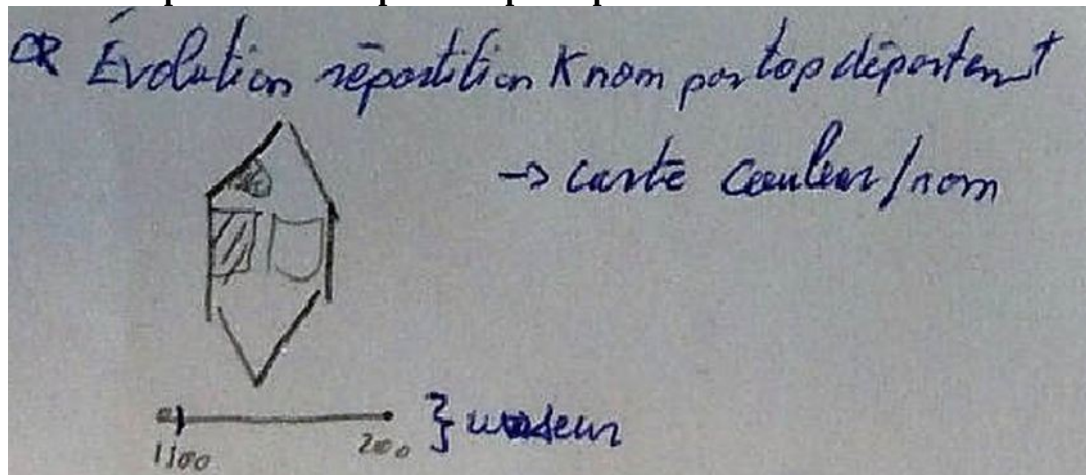 Évolution répartition K nom par top départemt
→ carte couleur/nom
1900
2000
} curseur